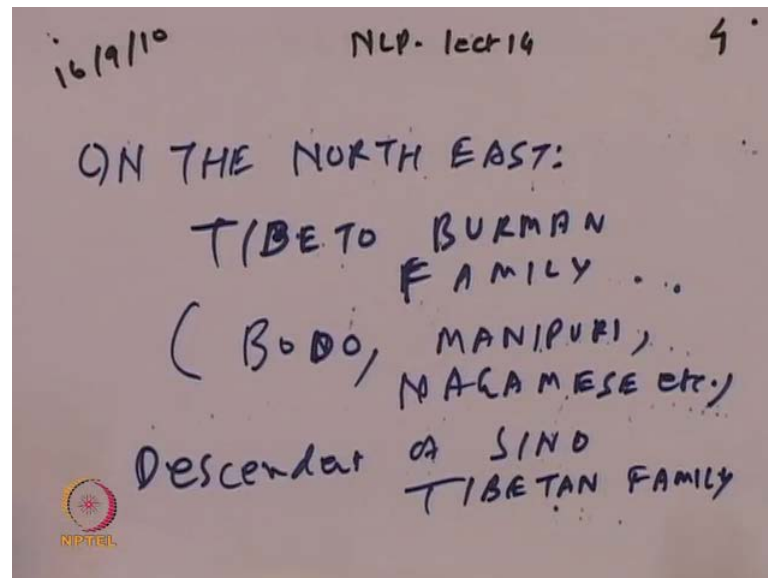 16/9/10 NLP- lect 14 4
ON THE NORTH EAST:
TIBETO BURMAN
FAMILY ...
( BODO, MANIPURI,
NAGAMESE etc.)
Descendat of SINO
TIBETAN FAMILY
NPTEL